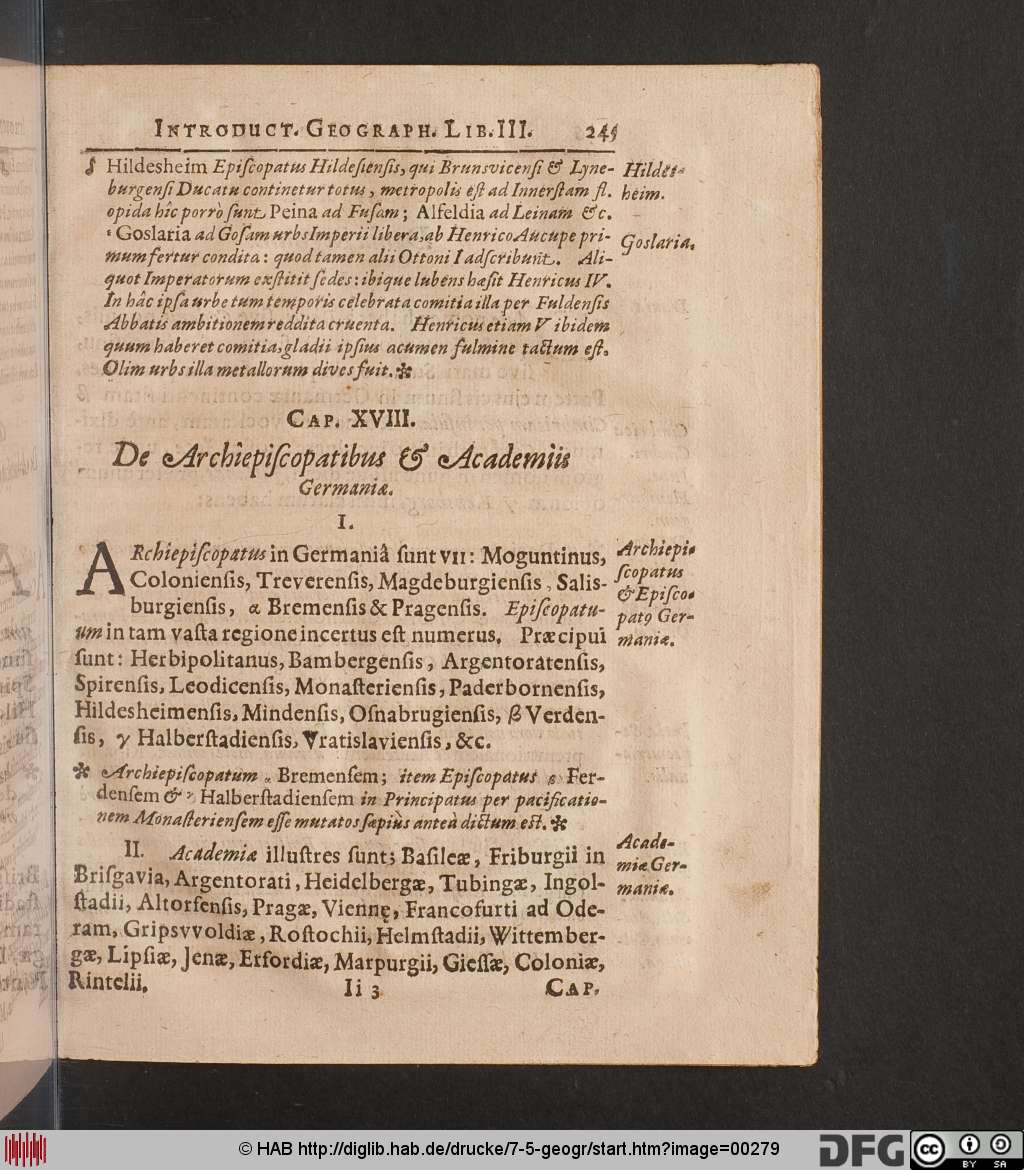 INTRODUCT. GEOGRAPH. LIB. III. 245
Hildesheim Epiſcopatus Hildeſienſis, qui Brunsvicenſi & Lyne-
burgenſi Ducatu continetur totus, metropolis eſt ad Innerſtam fl.
opida hîc porrò ſunt Peina ad Fuſam; Alfeldia ad Leinam &c.
Hildes-
heim.
Goslaria ad Goſam urbs Imperii libera, ab Henrico Aucupe pri-
mum fertur condita: quod tamen alii Ottoni I adſcribunt. Ali-
quot Imperatorum exſtitit ſedes: ibique lubens hæſit Henricus IV.
In hâc ipſa urbe tum temporis celebrata comitia illa per Fuldenſis
Abbatis ambitionem reddita cruenta. Henricus etiam V ibidem
quum haberet comitia, gladii ipſius acumen fulmine tactum eſt.
Olim urbs illa metallorum dives fuit.✻
Goslaria.
CAP. XVIII.
De Archiepiſcopatibus & Academiis
Germaniæ.
I.
ARchiepiſcopatus in Germaniâ ſunt VII: Moguntinus,
Colonienſis, Treverenſis, Magdeburgienſis, Salis-
burgienſis, α Bremenſis & Pragenſis. Epiſcopatu-
um in tam vaſta regione incertus eſt numerus. Præcipui
ſunt: Herbipolitanus, Bambergenſis, Argentoratenſis,
Spirenſis, Leodicenſis, Monaſterienſis, Paderbornenſis,
Hildesheimenſis, Mindenſis, Oſnabrugienſis, β Verden-
ſis, γ Halberſtadienſis, Vratislavienſis, &c.
Archiepi-
ſcopatus
& Epiſco-
patꝰ Ger-
maniæ.
✻ Archiepiſcopatum α Bremenſem; item Epiſcopatus β Fer-
denſem & γ Halberſtadienſem in Principatus per pacificatio-
nem Monaſterienſem eſſe mutatos ſæpiùs anteà dictum eſt.✻
II. Academiæ illuſtres ſunt; Baſileæ, Friburgii in
Briſgavia, Argentorati, Heidelbergæ, Tubingæ, Ingol-
ſtadii, Altorfenſis, Pragæ, Viennę, Francofurti ad Ode-
ram, Gripsvvoldiæ, Roſtochii, Helmſtadii, Wittember-
gæ, Lipſiæ, Jenæ, Erfordiæ, Marpurgii, Gieſſæ, Coloniæ,
Rintelii.
Acade-
miæ Ger-
maniæ.
Ii 3 CAP.
© HAB http://diglib.hab.de/drucke/7-5-geogr/start.htm?image=00279
DFG
cc BY SA